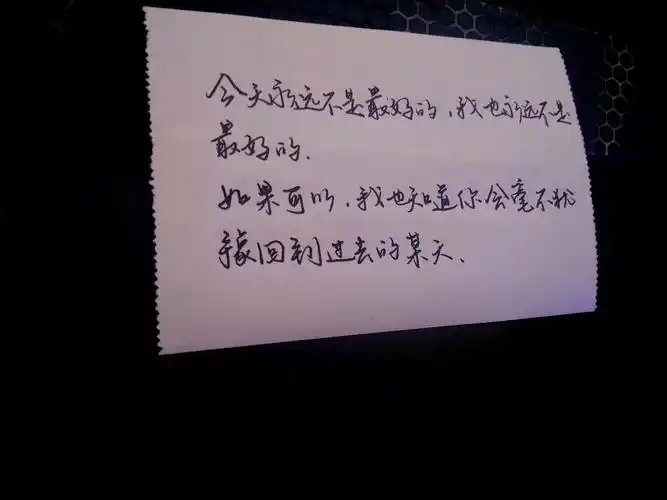 今天永远不是最好的,我也永远不是
最好的.
如果可以,我也知道你会毫不犹
豫回到过去的某天、